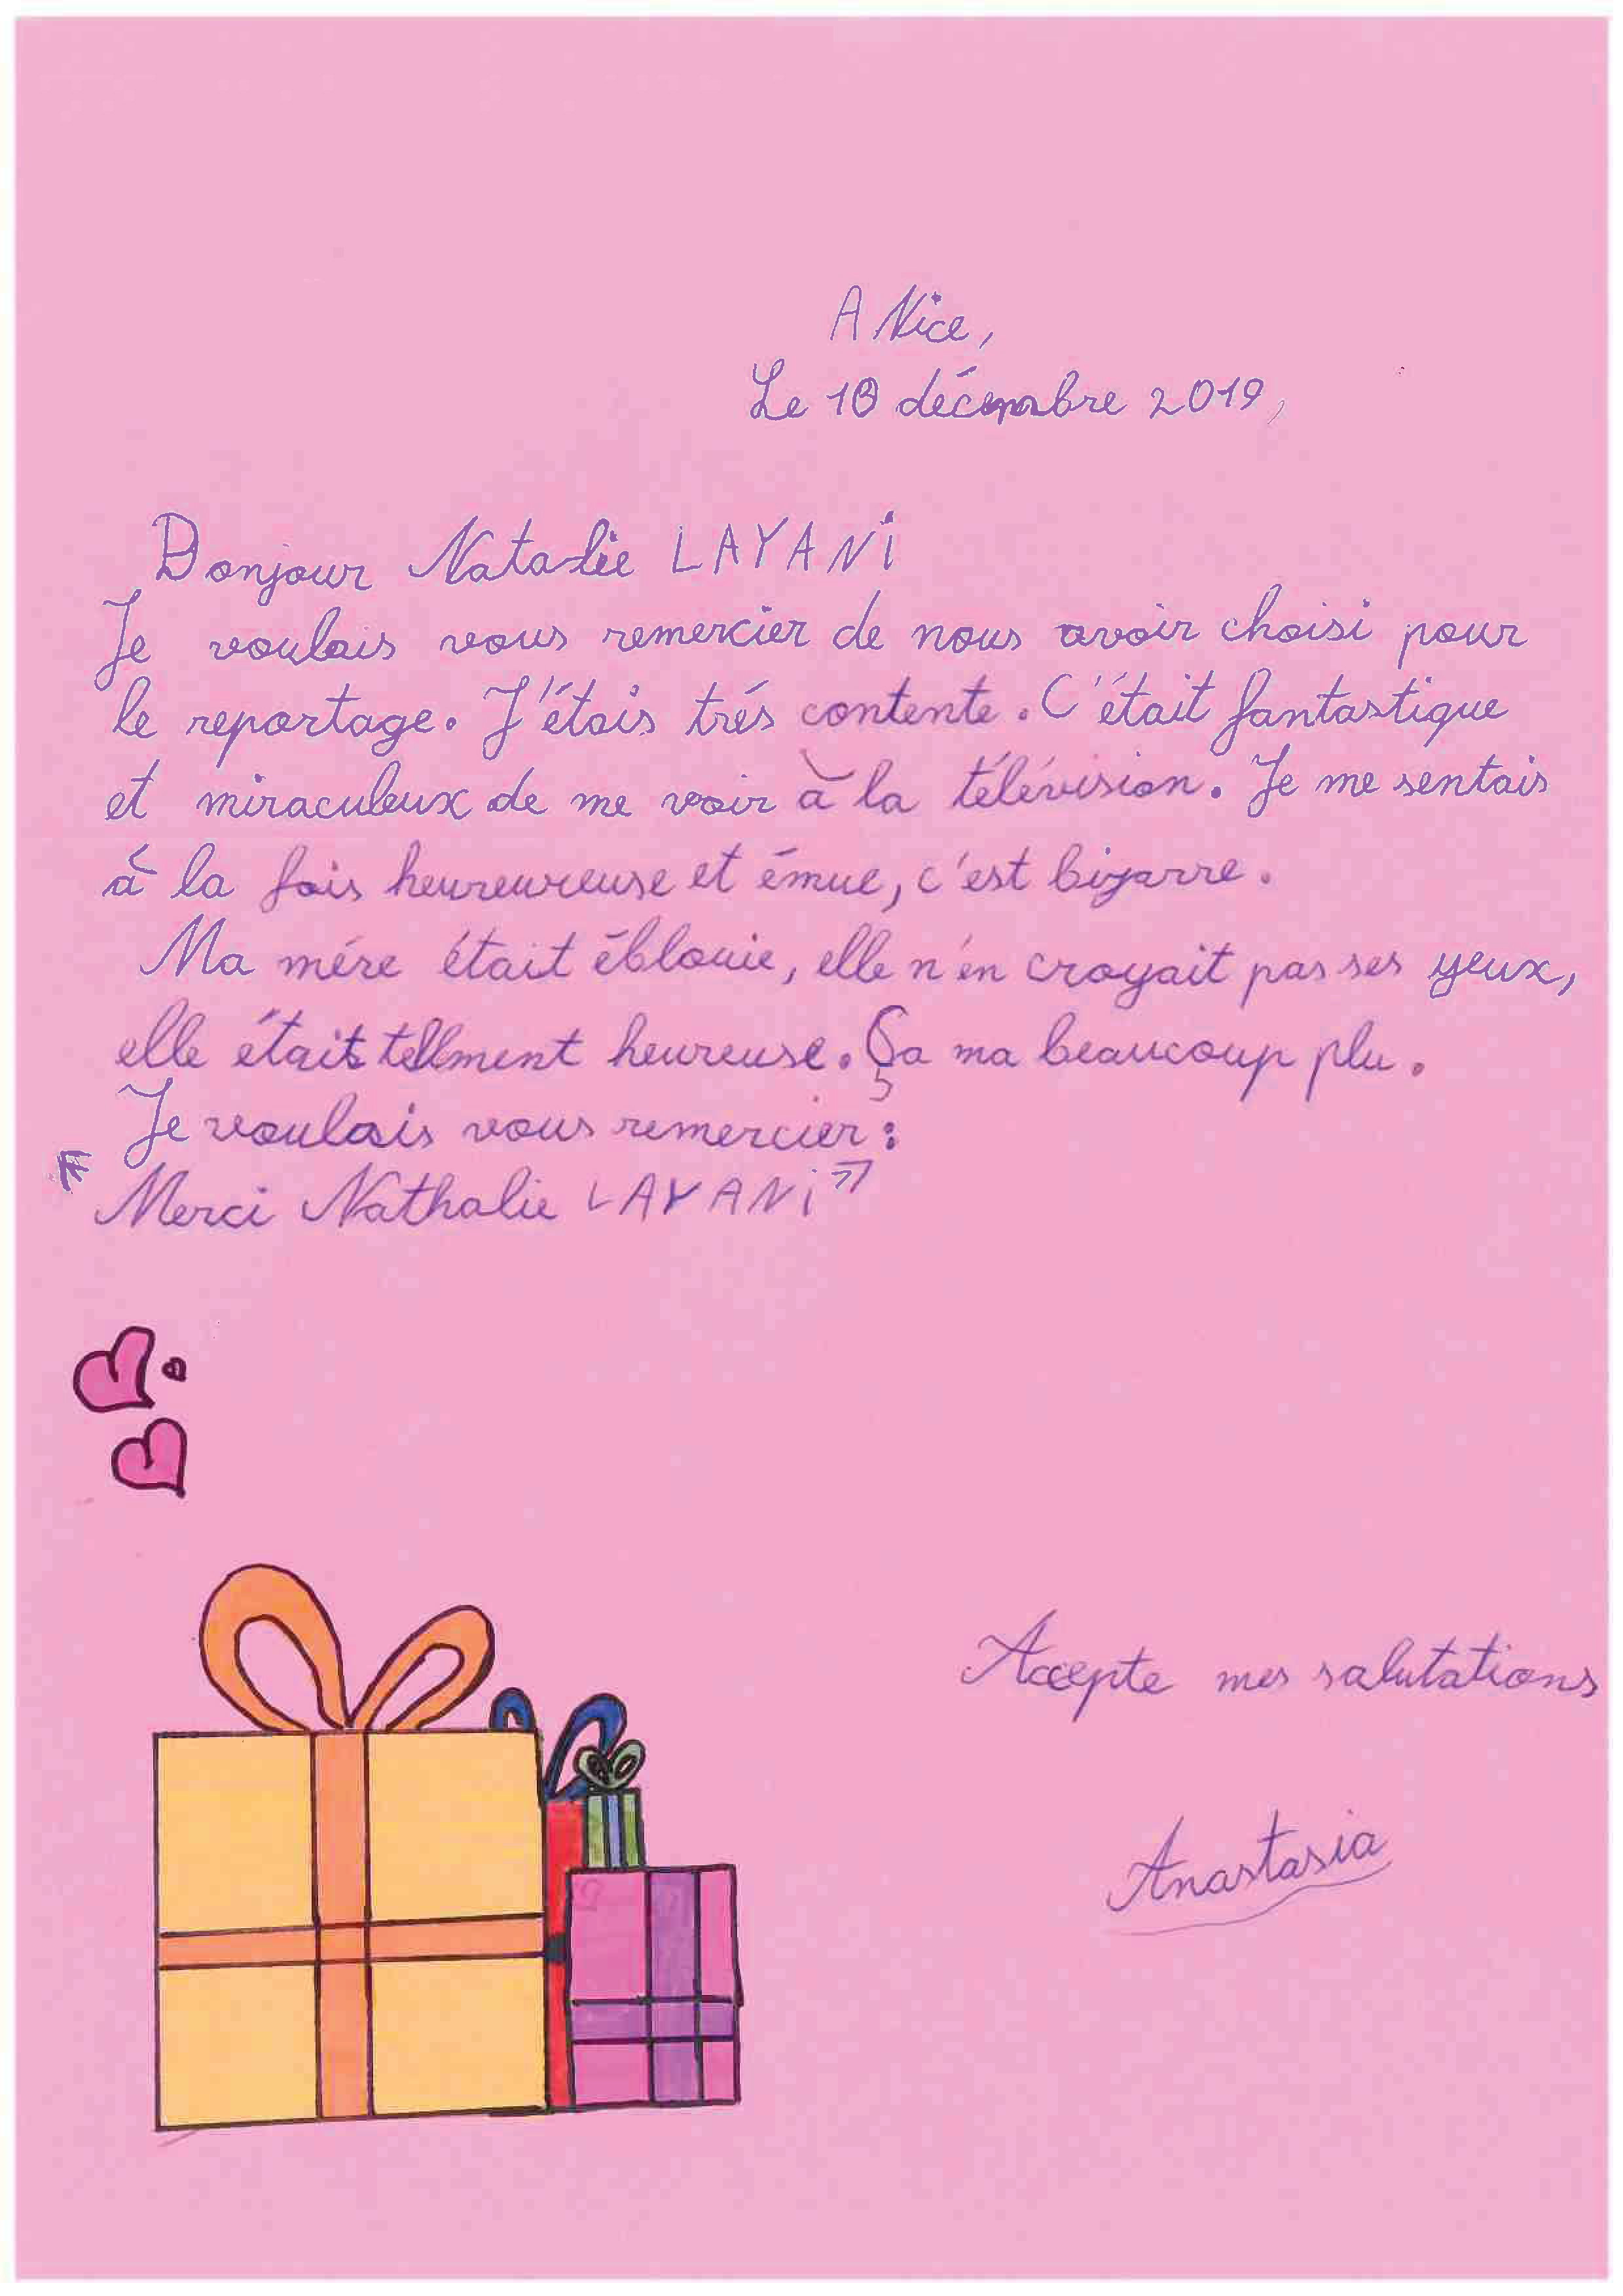 A Nice,
Le 10 décembre 2019,
Bonjour Natalie LAYANi
Je voulais vous remercier de nous avoir choisi pour
le reportage. J'étais trés contente. C'était fantastique
et miraculeux de me voir à la télévision. Je me sentais
à la fois heureureuse et émue, c'est bizarre.
Ma mére était éblouie, elle n'en croyait pas ses yeux,
elle était tellment heureuse. Ça ma beaucoup plu.
Je voulais vous remercier :
« Merci Nathalie LAYANi »
Accepte mes salutations
Anastasia